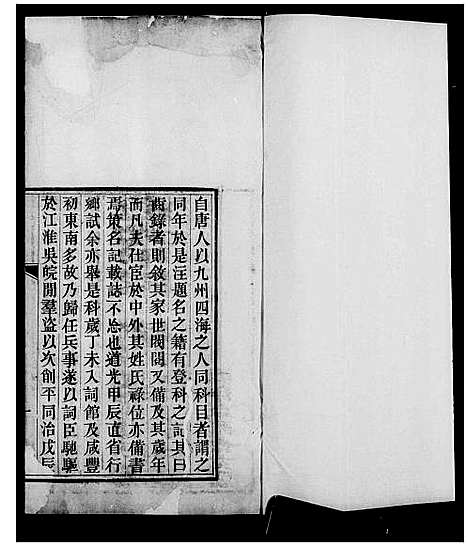 自唐人以九州四海之人同科目者謂之
同年於是注題名之籍有登科之記其曰
齒錄者則敘其家世閥閱又備及其歲年
而凡夫仕宦於中外其姓氏祿位亦備書
焉策名記載誌不忘也道光甲辰直省行
鄉試余亦舉是科歲丁未入詞館及咸豐
初東南多故乃歸任兵事遂以詞臣馳驅
於江淮吳皖閒羣盜以次創平同治戊辰